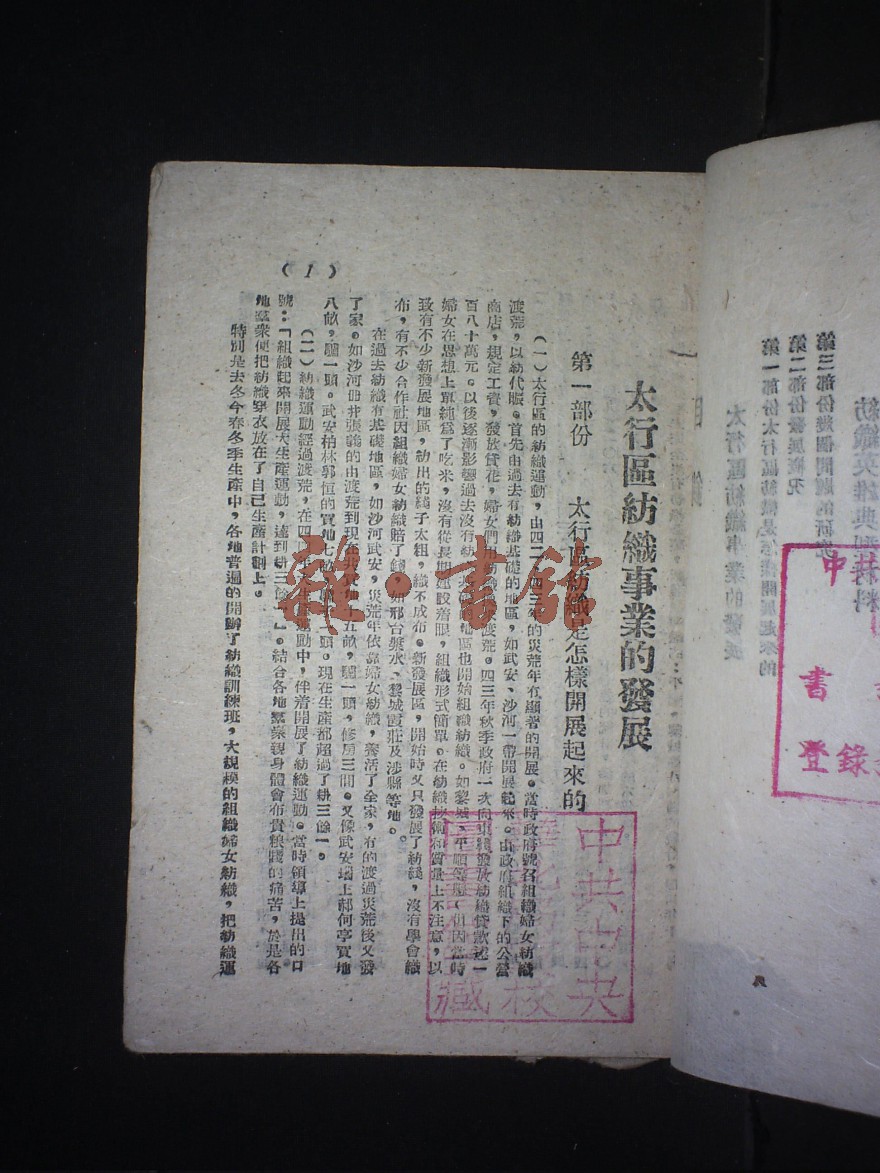 太行區紡織事業的發展
第一部份 太行區紡織是怎樣開展起來的
(一)太行區的紡織運動,由四二、四三年的災荒年有顯著的開展。當時政府號召組織婦女紡織
渡荒,以紡代賑。首先由過去有紡織基礎的地區,如武安、沙河一帶開展起來。由政府組織下的公營
商店,規定工資,發放貸花,婦女們用紡織來渡荒。四三年秋季政府一次向東綫發放紡織貸款达一
百八十萬元。以後逐漸影響過去沒有紡織基礎的地區也開始組織紡織。如黎城、平順等縣,但因當時
婦女在思想上單純爲了吃米,沒有從長期建設着眼,組織形式簡單。在紡織技術和質量上不注意,以
致有不少新發展地區,紡出的綫子太粗,織不成布。新發展區,開始時又只發展了紡綫,沒有學會織
布,有不少合作社因組織婦女紡織賠了錢,如邢台漿水、黎城霞莊及涉縣等地。
在過去紡織有基礎地區,如沙河武安,災荒年依靠婦女紡織,養活了全家,有的渡過災荒後又發
了家。如沙河册井張義的由渡荒到現在共買地十五畝,驢一頭,修房三間。又像武安 上郝何亭買地
八畝,驢一頭。武安柏林郭恒的買地七畝, 一頭。現在生產都超過了耕三餘一。
(二)紡織運動經過渡荒,在四四年大生產運動中,伴着開展了紡織運動。當時領導上提出的口
號:「組織起來開展大生產運動,達到耕三餘一」。結合各地羣衆親身體會布貴粮賤的痛苦,於是各
地羣衆便把紡織穿衣放在了自己生產計劃上。
特別是去冬今春冬季生產中,各地普遍的開辦了紡織訓練班,大規模的組織婦女紡織,把紡織運
(1)
雜·書館
中共中央
校
藏
紡織英雄典型材料
第三部份幾個問題的研究
第二部份發展概況
第一部份太行區紡織是怎樣開展起來的
太行區紡織事業的發展
目錄
中
書
登錄